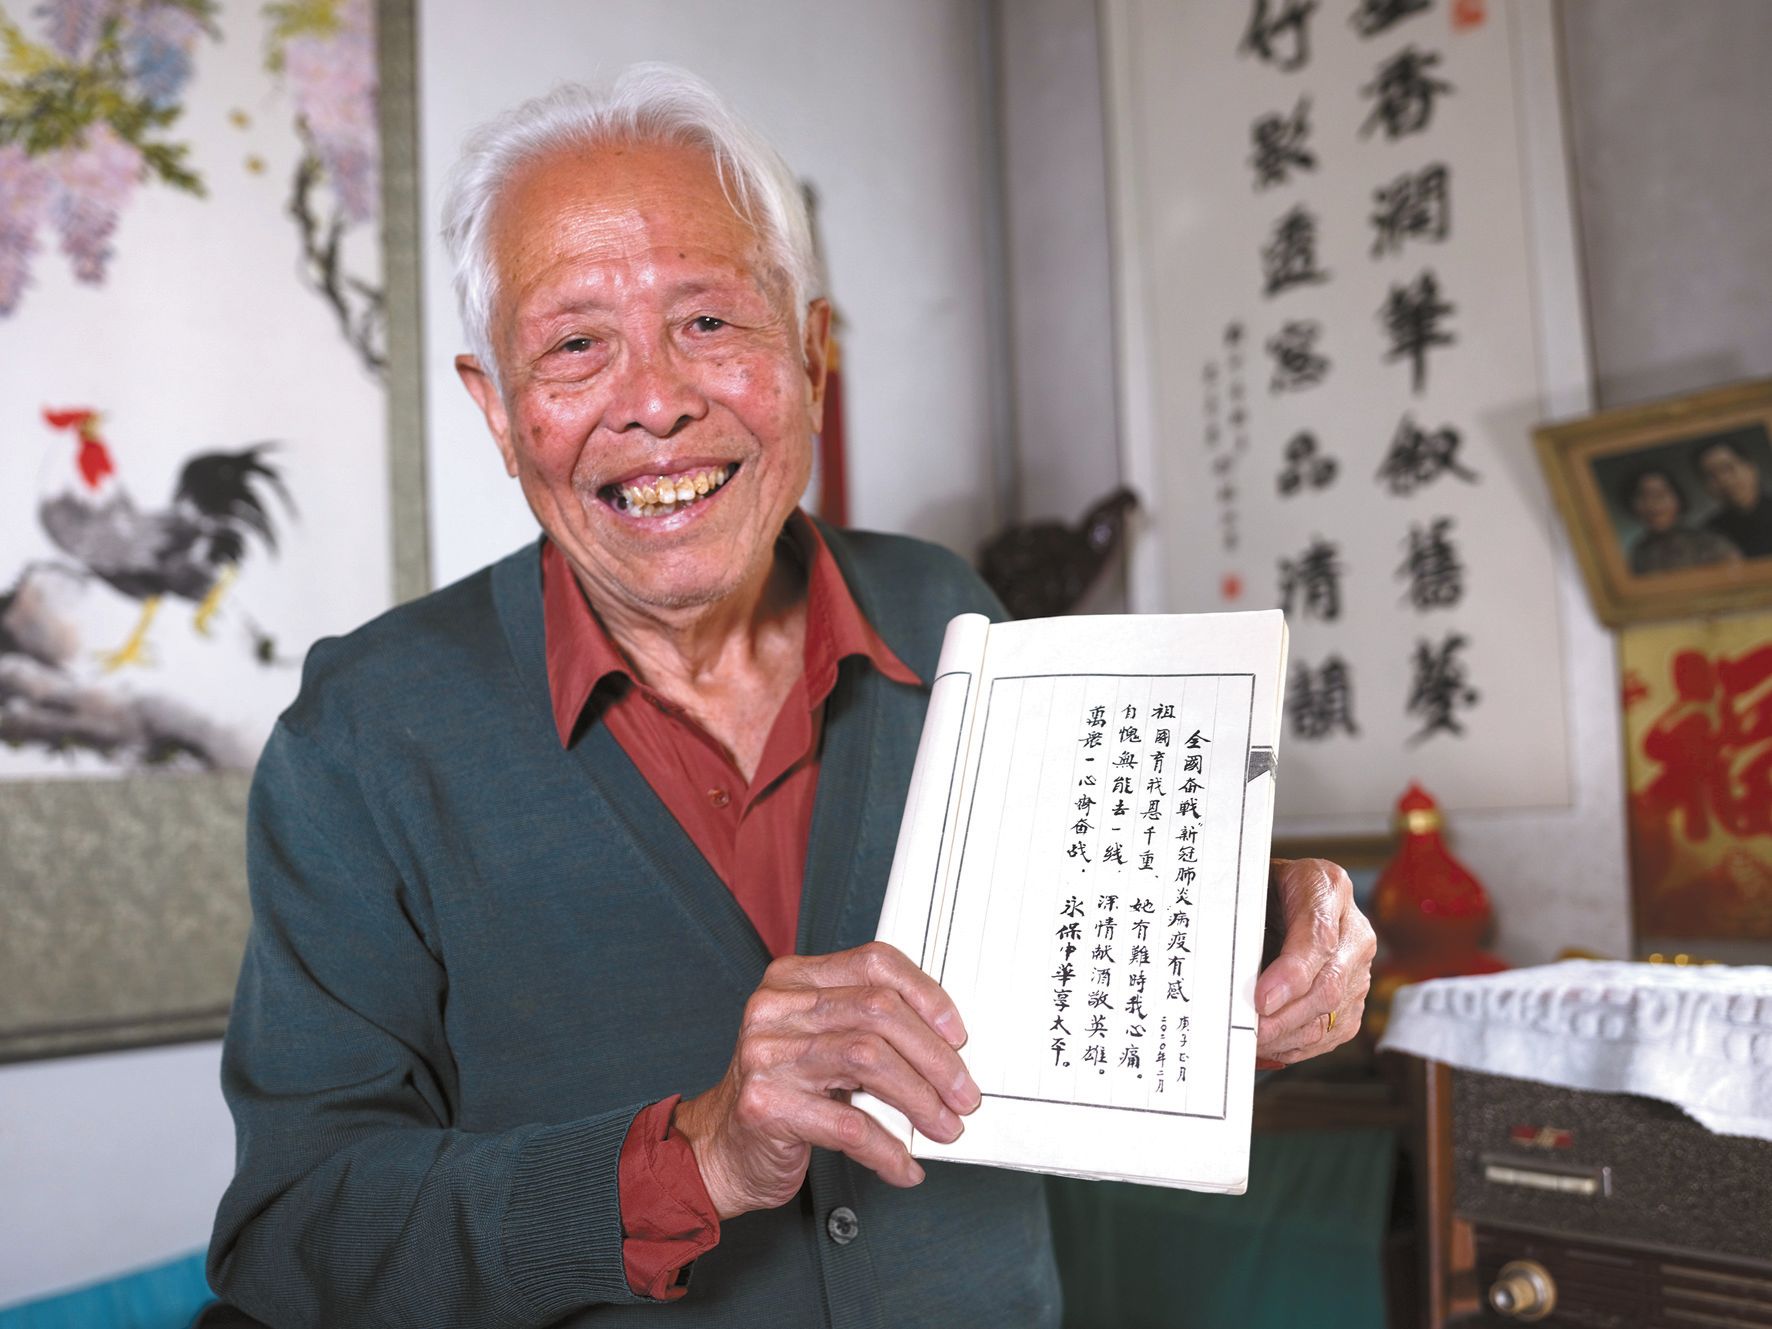 全國奋戰“新冠肺炎”病疫有感
庚子正月
二〇二〇年二月
祖國育我恩千重、她有難時我心痛。
自愧無能去一线、深情献酒敬英雄。
萬衆一心齊奋战、永保中華享太平。
香潤筆叙舊夢
竹影透窓品清韻
福